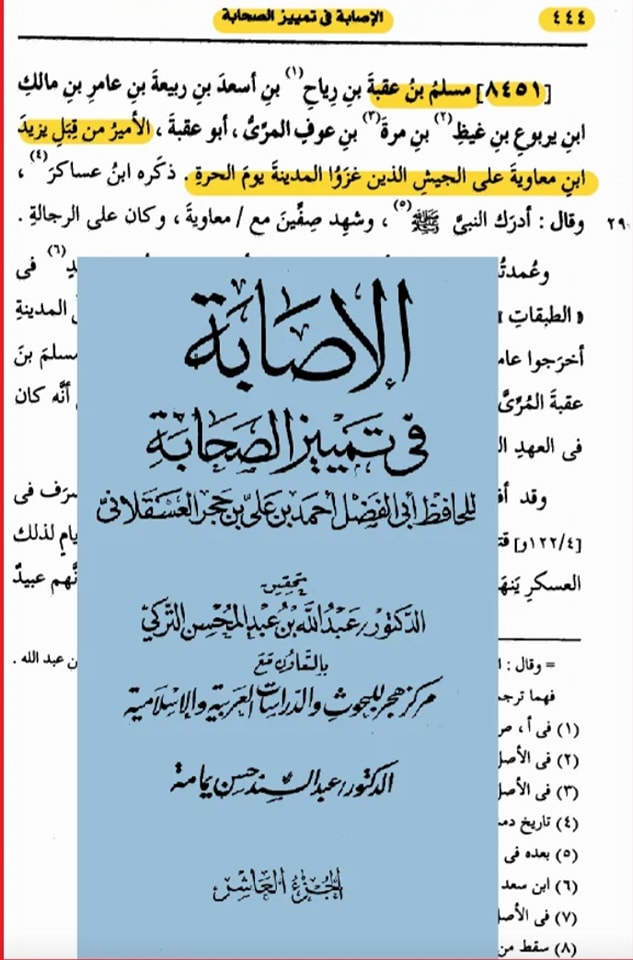 ٤٤٤
الإصابة فى تمييز الصحابة
[٨٤٥١] مسلمُ بنُ عقبةَ بنِ رِياحِ(١) بنِ أسعدَ بنِ ربيعةَ بنِ عامرِ بنِ مالكِ
ابنِ يربوعِ بنِ غيظِ(٢) بنِ مرةَ(٣) بنِ عوفِ المرِّىُّ ، أبو عقبةَ ، الأميرُ من قِبَلِ يزيدَ
ابنِ معاويةَ على الجيشِ الذين غزَوُا المدينةَ يومَ الحرةِ . ذكَره ابنُ عساكرَ(٤) ،
وقال : أدرَك النبىَّ ﷺ(٥) ، وشهِد صِفِّينَ مع / معاويةَ ، وكان على الرجالةِ .
٢٩
وعُمدتُ
(٦) فى
« الطبقاتِ »
المدينةِ
أخرَجوا عام
مسلمَ بنَ
عقبةَ المُرِّىَّ
أنَّه كان
فى العهدِ
وقد أف
سرَف فى
[٤/١٢٢و]
يامٍ لذلك
العسكرِ يَنهَ
نَّهم عبيدٌ
= وقال :
ن عبد الله .
فهما ترجم
(١) فى أ ، ص
(٢) فى الأصل
(٣) فى الأصل
(٤) تاريخ دمـ
(٥) بعده فى
(٦) ابن سعد
(٧) فى الأصل
(٨) سقط من
الإصَابَة
فى تمييز الصَّحَابَة
للحافظ أبى الفضل أحمد بن على بن حجر العسقلانىّ
تحقيق
الدكتور/ عبد الله بن عبد المحسن التركى
بالتعاون مع
مركز هجر للبحوث والدراسات العربية والإسلامية
الدكتور/ عبد السند حسن يمامة
الجزء العاشر